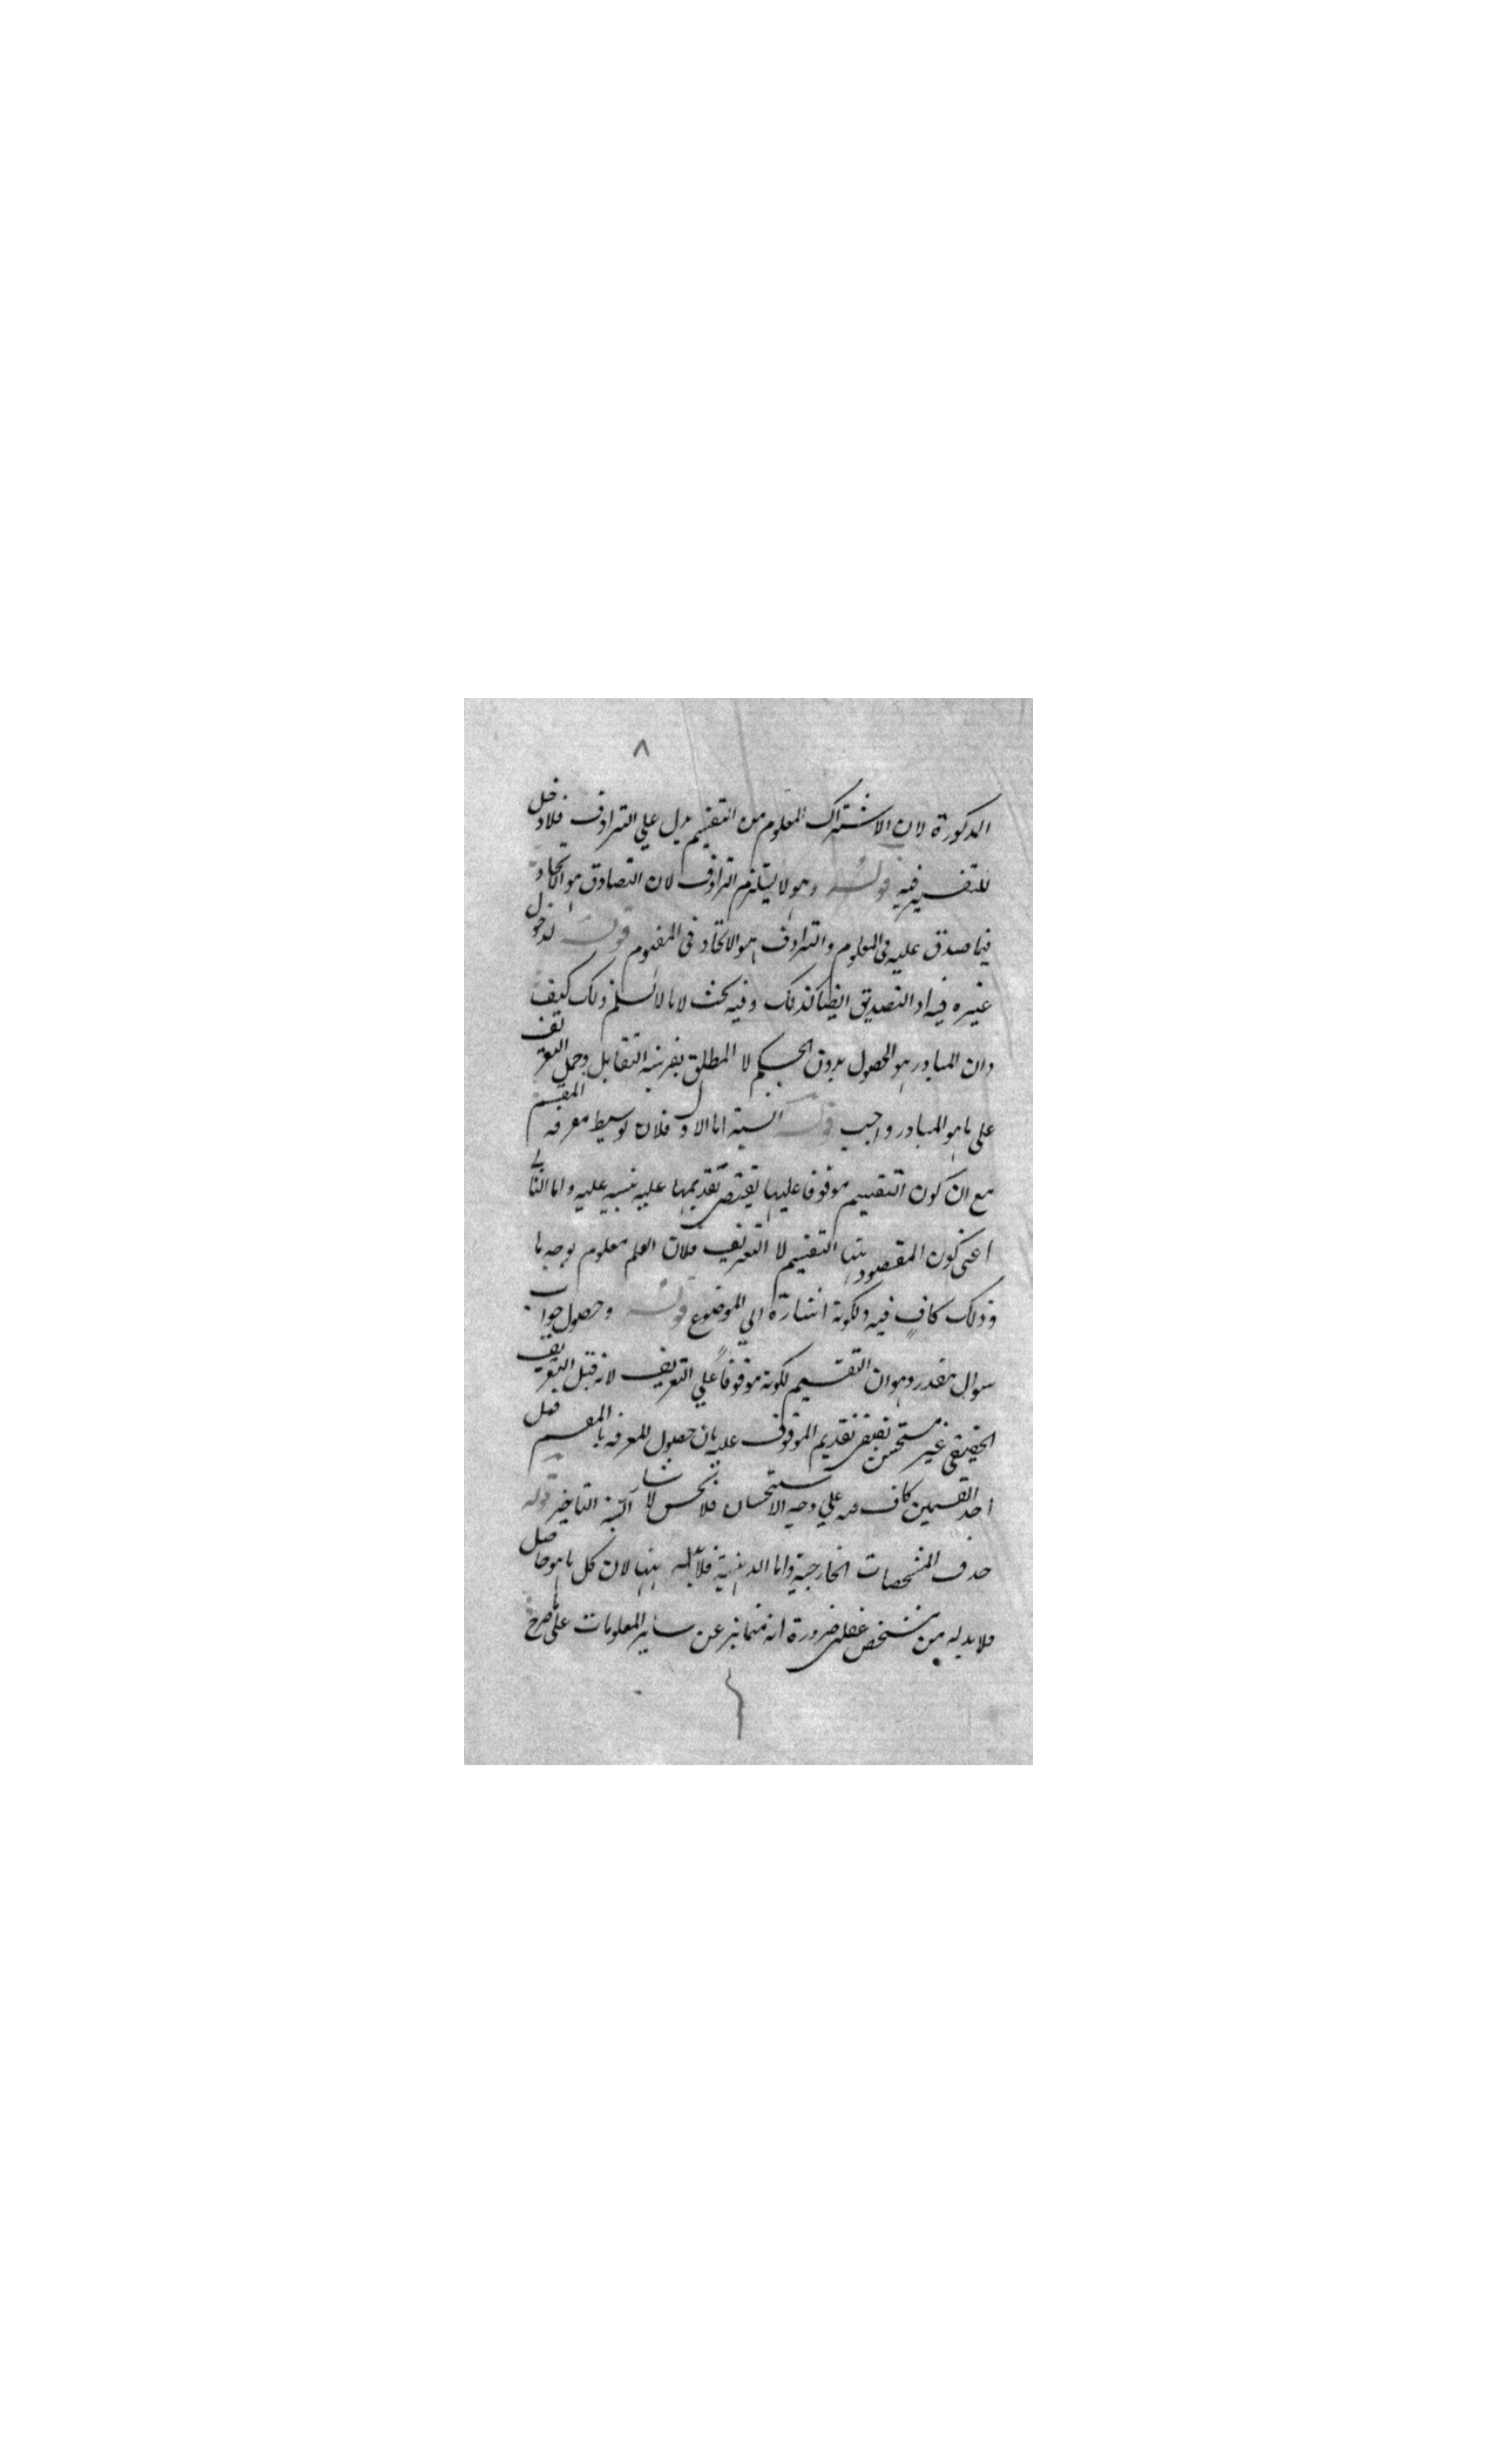 ٨
المذكورة لان الاشتراك المعلوم من التقسيم يدل علي الترادف فلا دخل
للتفسير فيه قوله وهو لا يستلزم الترادف لان التصادق هو الاتحاد
فيما صدق عليه في المعلوم والترادف هو الاتحاد في المفهوم قوله لدخول
غيره فيه اذ التصديق ايضا كذلك وفيه بحث لانا لا نسلم ذلك كيف
وان المتبادر هو الحصول بدون الحكم لا المطلق بقرينة التقابل وحمل التعريف
على ما هو المتبادر واجب قوله اما الاول فلان توسيط معرفة المقسم
مع ان كون التقسيم موقوفا عليها يقتضي تقديمها عليه تنبيه عليه واما الثاني
اعني كون المقصود بينها التقسيم لا التعريف فلان العلم معلوم بوجه ما
وذلك كاف فيه ولكونه اشارة الي الموضوع قوله وحصول جواب
سوال مقدر وهو ان التقسيم لكونه موقوفا علي التعريف لانه قبل التعريف
الحقيقي غير مستحسن يقتضي تقديم الموقوف عليه بان حصول المعرفة بالمقسم قبل
احد القسمين كاف فيه علي وجه الاستحسان فلا التاخير قوله
حذف المشخصات الخارجية واما الذهنية فلا بد له منها لان كل ما هو حاصل
فلا بد له من تشخص عقلي ضرورة انه متمايز عن ساير المعلومات على ما صرح